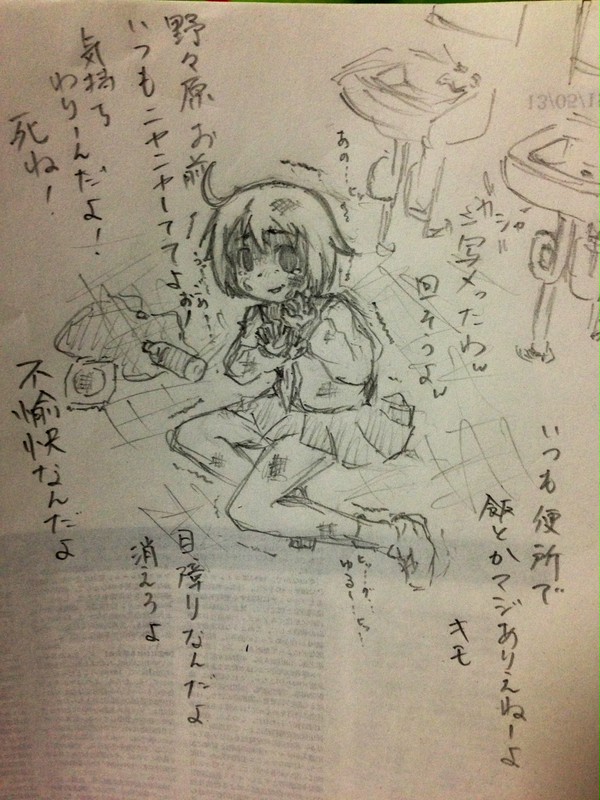 野々原 お前
いつもニヤニヤしててよぉ!
気持ち
わりーんだよ!
死ね!
あの…
カシャ
写メったわw
回そうよw
いつも便所で
飯とかマジありえねーよ
キモ
不愉快なんだよ
目障りなんだよ
消えろよ
13/05/1